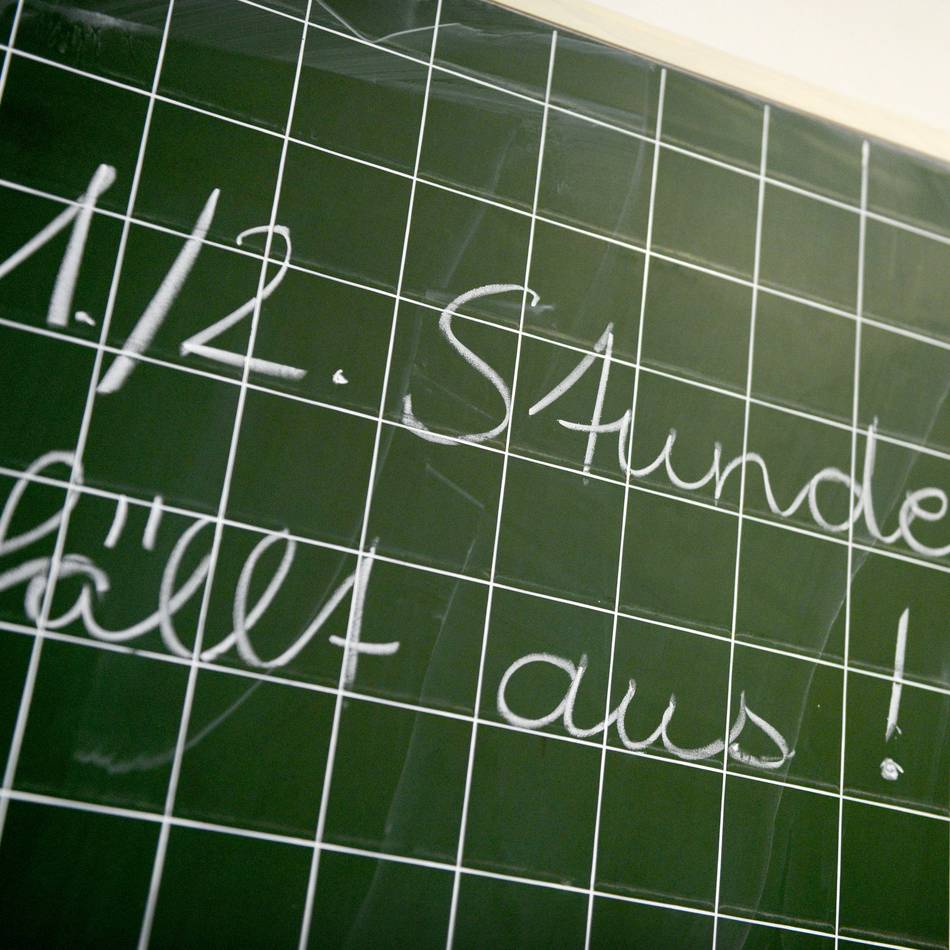 1./2. Stunde
fällt aus!